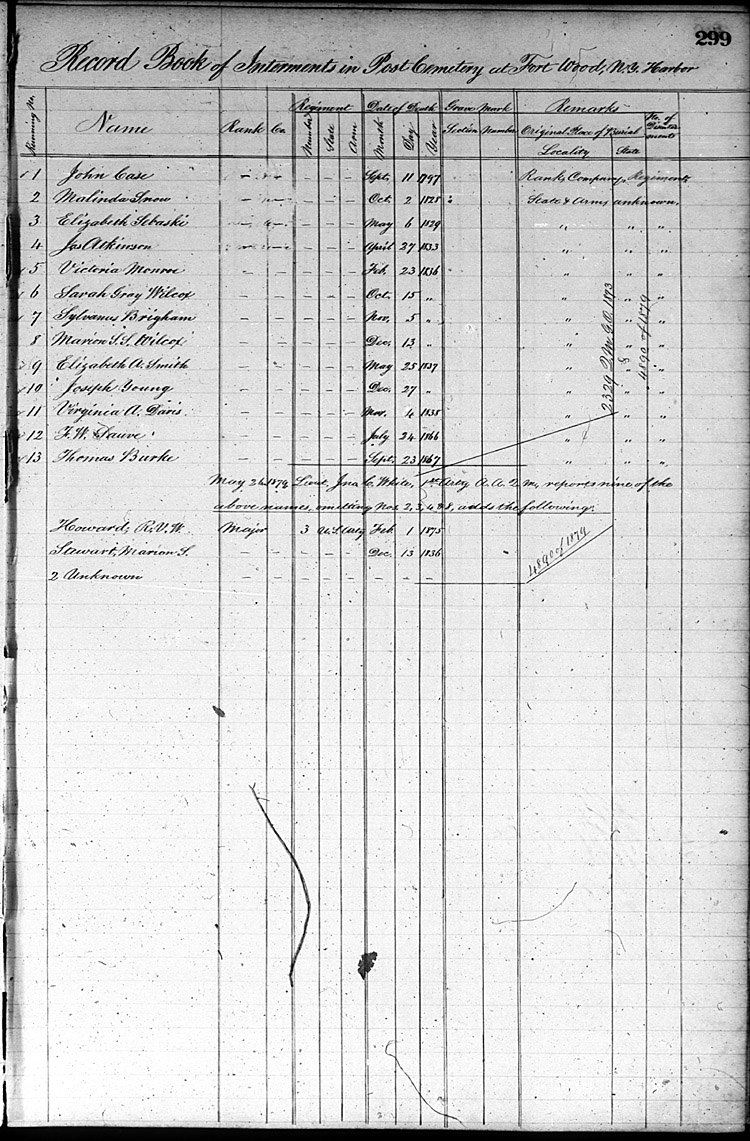 299
Record Book of Interments in Post Cemetery at Fort Wood, N.Y. Harbor
Regiment Date of Death Grave Mark Remarks
Running No. Name Rank Co. Number State Arm Month Day Year Section Number Original Place of Burial No. of Disinterments
Locality State
1 John Case Sept. 11 1797 Rank, Company, Regiment,
2 Malinda Snow — — — — — Oct. 2 1828 State & Arm, unknown.
3 Elizabeth Sebaski — — — — — May 6 1829 " " "
4 Jas Atkinson — — — — — April 27 1833 " " "
5 Victoria Monroe — — — — — Feb. 23 1836 " " "
6 Sarah Gray Wilcox — — — — — Oct. 15 " " " "
7 Sylvanus Brigham — — — — — Nov. 5 " " " "
8 Marion S. S. Wilcox — — — — — Dec. 13 " " " "
9 Elizabeth A. Smith — — — — — May 25 1837 " " "
10 Joseph Young — — — — — Dec. 27 " " " "
11 Virginia A. Davis — — — — — Nov. 4 1835 " " "
12 F. W. Sauve — — — — — July 24 1866 " " "
13 Thomas Burke — — — — — Sept. 23 1867 " " "
2329 Q.M.G.O. 1873
& 4890 of 1879
May 26, 1879, Lieut. Jna C. White, 1st Arty A. A. Q. M., reports nine of the
above names, omitting Nos. 2, 3, 4 & 8, adds the following:
Howard, R. V. W. Major 3 U.S. Arty Feb. 1 1875
Stewart, Marion S. — — — — — Dec. 13 1836
2 Unknown — — — — — — — —
4890 of 1879